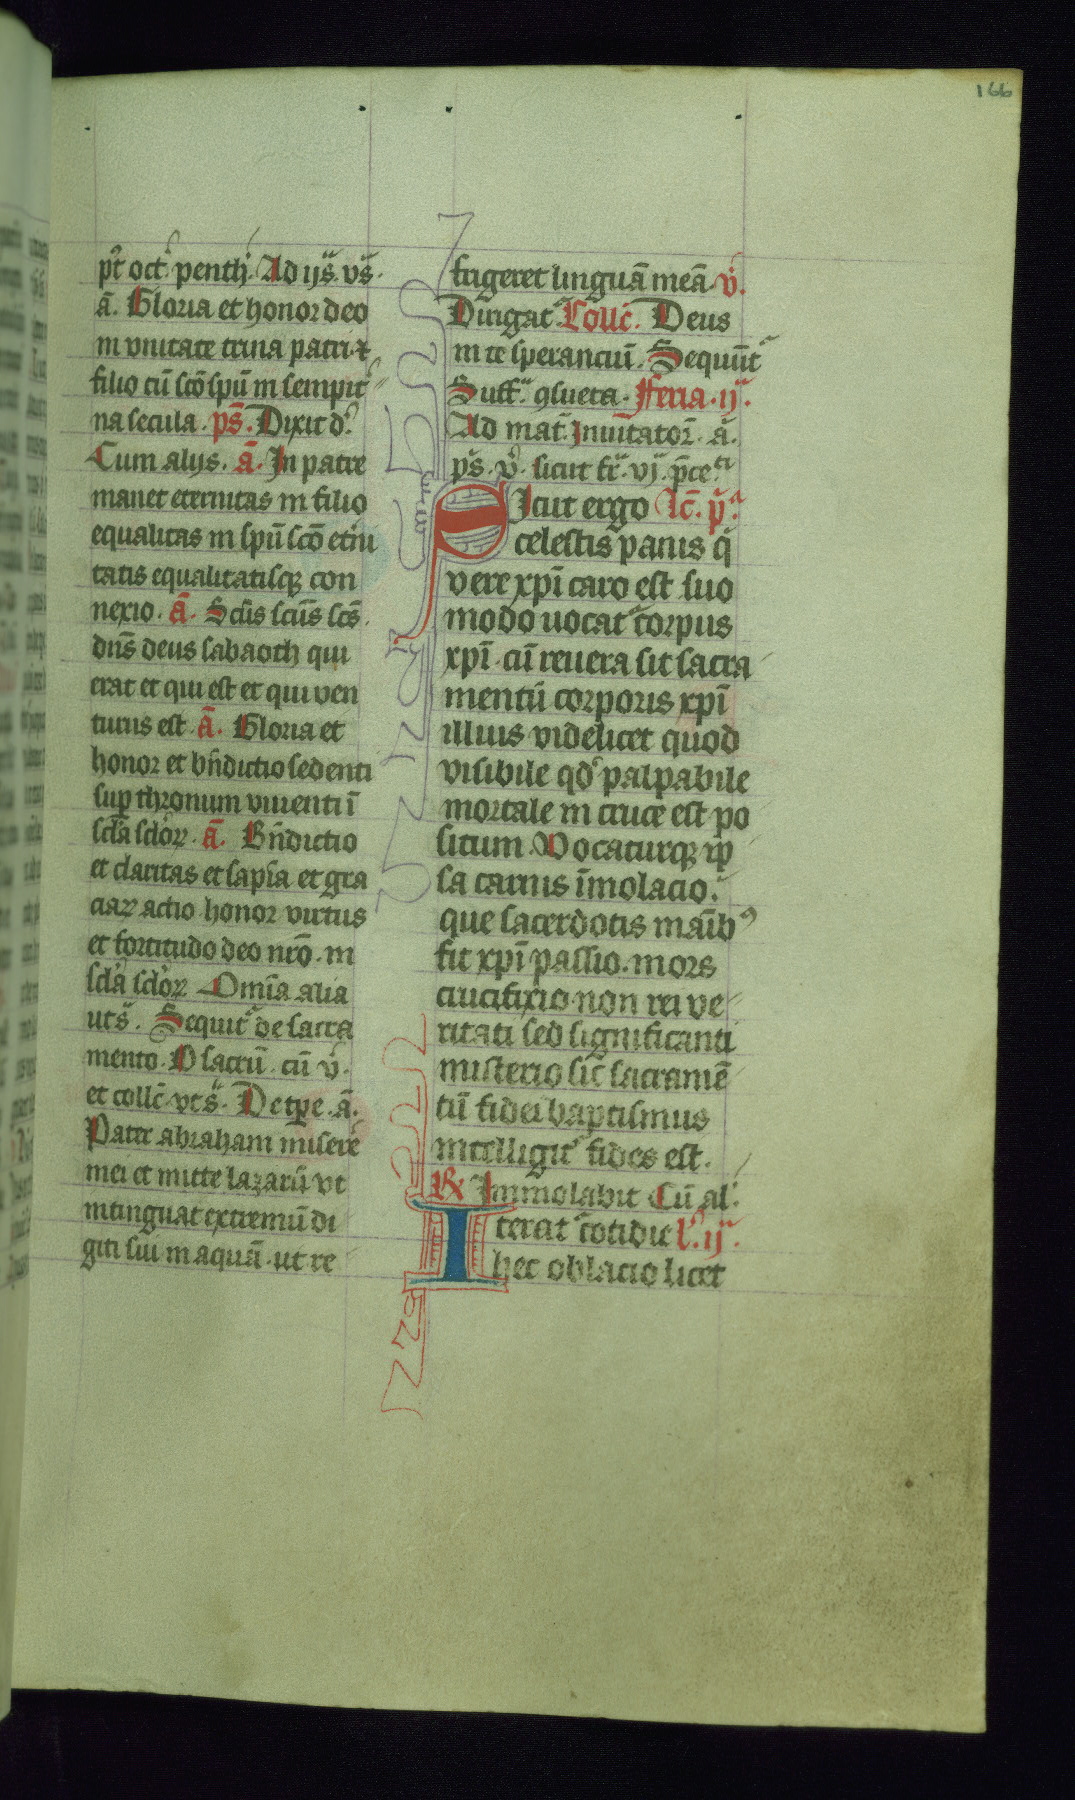 166
pꝰt oct̉ penth̉. Ad ijs̃. vs̃.
ã. Gloria et honor deo
in vnitate trina patri ⁊
filio cũ scõ spũ in sempit̾
na secula. ps̃. Dixit d̉.
Cum alijs. ã. In patre
manet eternitas in filio
equalitas in spũ scõ et̾ni
tatis equalitatisqꝫ con
nexio. ã. Scũs scũs scs̃.
dñs deus sabaoth qui
erat et qui est et qui ven
turus est. ã. Gloria et
honor et bñdictio sedenti
suꝑ thronum viuenti ĩ
scl̃a scl̃oꝝ. ã. Bñdictio
et claritas et sapĩa et gra
ciaꝝ actio honor virtus
et fortitudo deo nrõ. in
scl̃a scl̃oꝝ Omĩa alia
uts̃. Sequit̉ de sacra
mento. O sacrũ. cũ v̉.
et coll̃c vts̃. De tꝑe. ã.
Pater abraham miserẽ
mei et mitte lazarũ vt
intinguat extremũ di
giti sui in aquã. ut re
frigeret linguã meã. v̉.
Dirigat̉ Coll̃c. Deus
in te speranciũ. Sequũt̉
Suff̃. ꝯsueta. Feria. ij.
Ad mat̃. Inuitator̃. ã.
ps̃. v̉. sicut fr̃. vj. p̃ce.
Sicut ergo Lc̃. p̃.
celestis panis q̉
vere xp̃i caro est suo
modo uocat̉ corpus
xp̃i. cũ reuera sit sacra
mentũ corporis xp̃i
illius videlicet quod
visibile qd̉ palpabile
mortale in cruce est po
situm Vocaturqꝫ ip̃
sa carnis ĩmolacio.
que sacerdotis maĩbꝰ
fit xp̃i passio. mors
crucifixio non rei ve
ritati sed significanti
misterio sic̃ sacramẽ
tũ fidei baptismus
intelligit̉ fides est.
℟ Immolabit Cũ al̉.
Iterat̉ cotidie l̉. ij.
hec oblacio licet